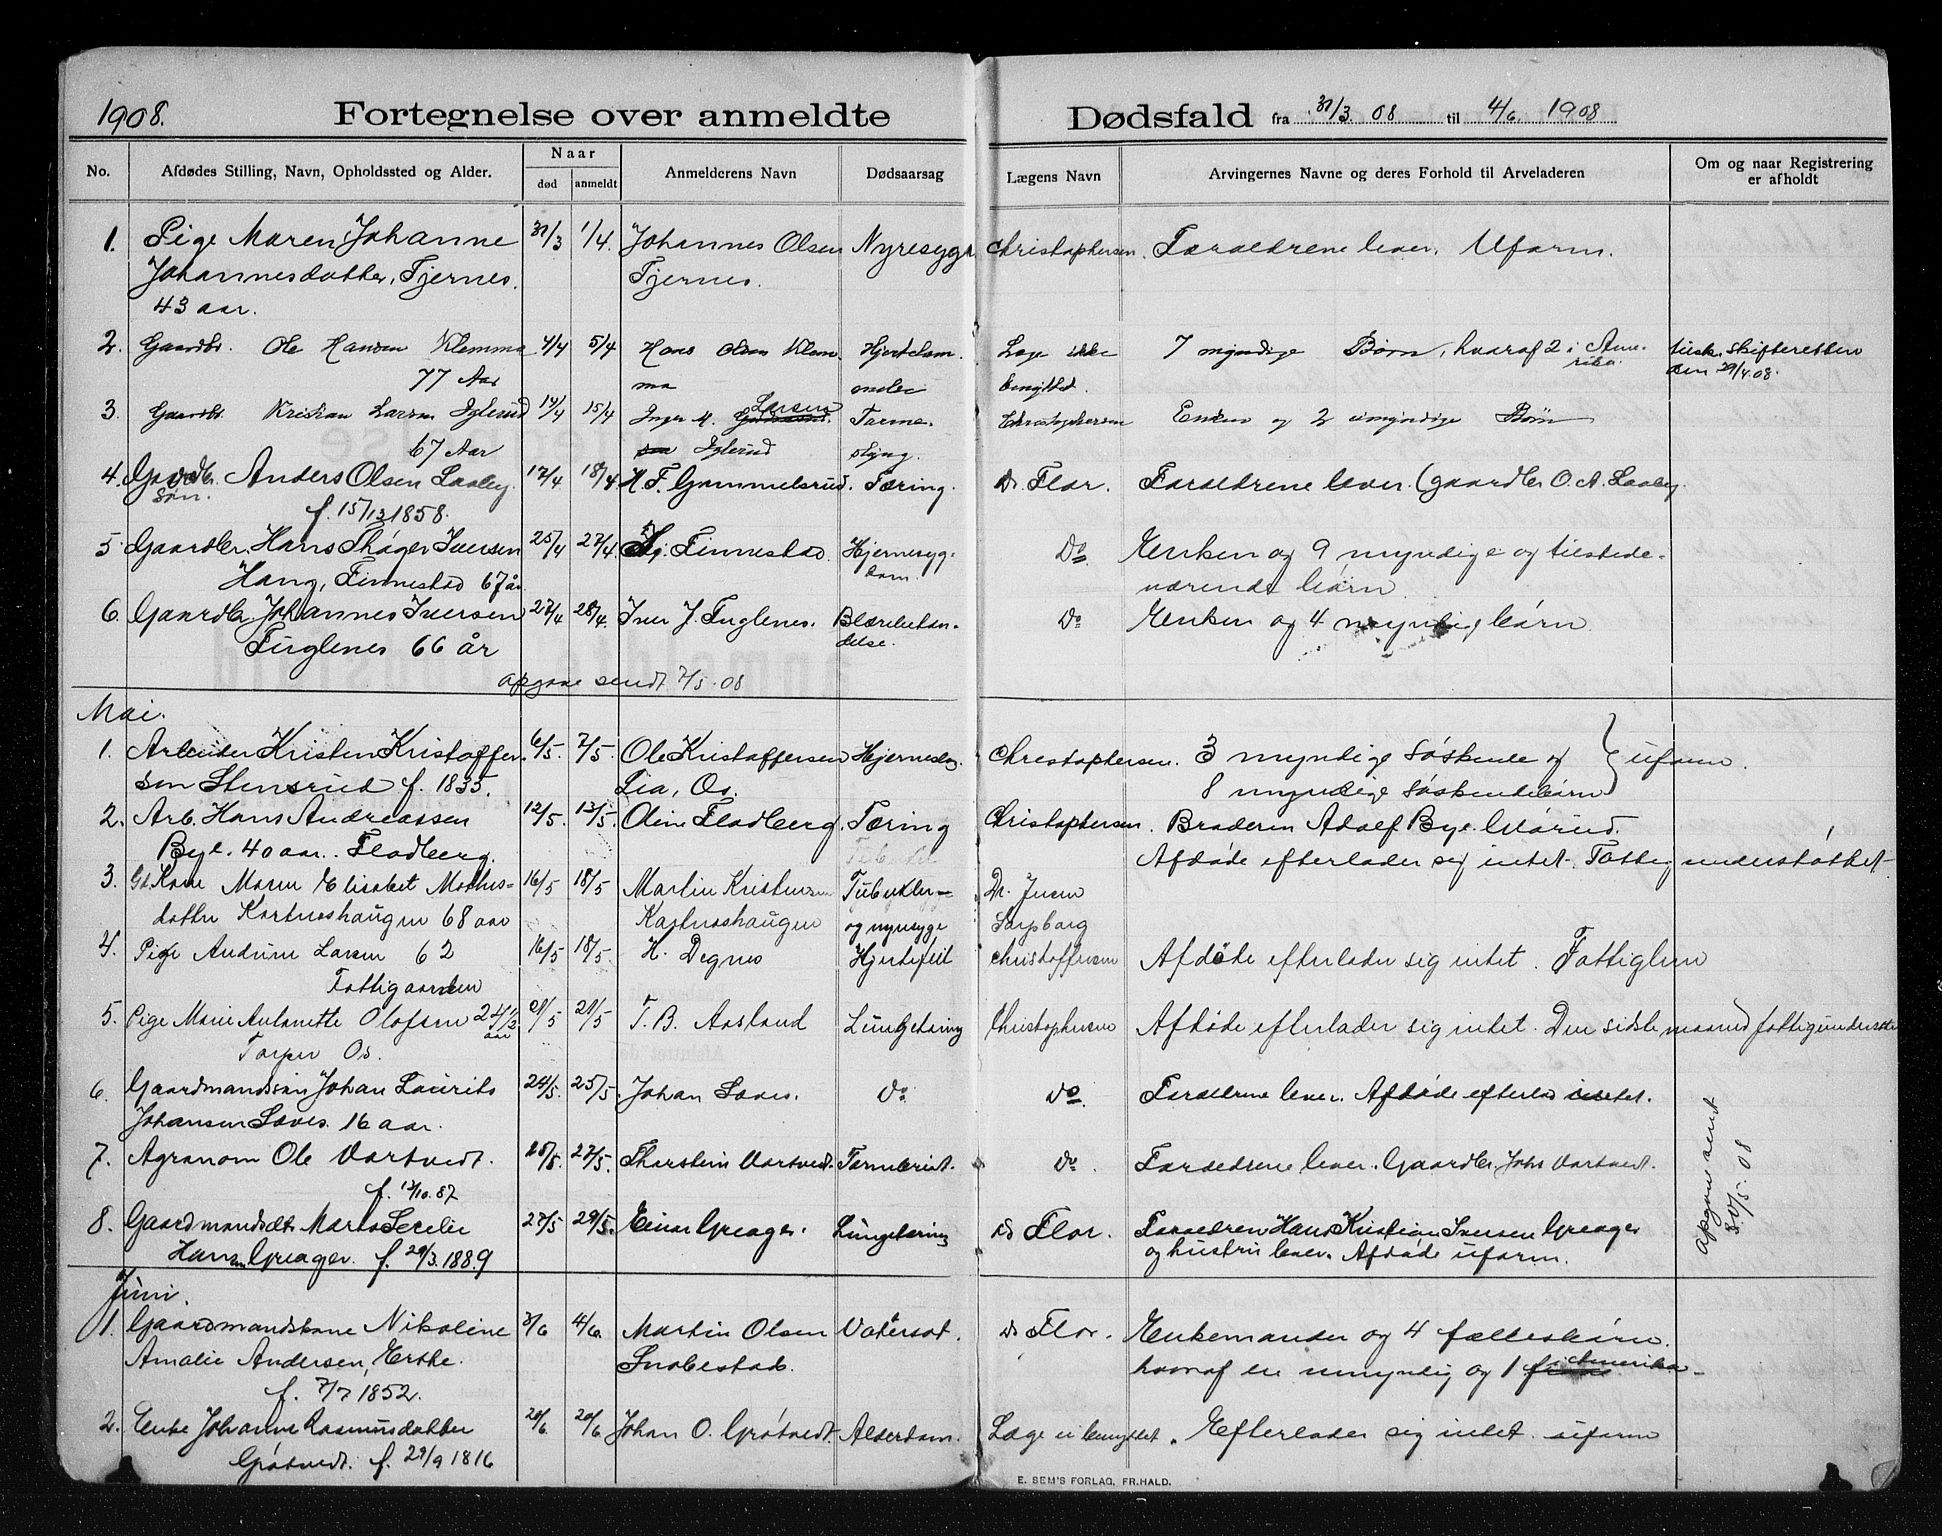 1908. Fortegnelse over anmeldte Dødsfald fra 31/3 08 til 4/6 1908
No. Afdødes Stilling, Navn, Opholdssted og Alder. Naar død anmeldt Anmelderens Navn Dødsaarsag Lægens Navn Arvingernes Navne og deres Forhold til Arveladeren Om og naar Registrering er afholdt
1. Pige Maren Johanne 31/3 1/4 Johannes Olsen Nyresyge Christophersen Forældrene lever. Uform.
Johannesdatter, Tjernes. Tjernes.
43 aar.
2. Gaardbr. Ole Hansen Klemma 4/4 5/4 Hans Olsen Klem Hjertelam Læge ikke 7 myndige Børn, hvoraf 2 i Ame tilsk. Skifteretten
77 Aar ma melse benyttet. rika. den 29/4 08.
3. Gaardbr. Kristian Larsen Iglerud 14/4 15/4 Inger M. Larsen Tarme Christophersen Enken og 2 umyndige Børn
67 Aar Iglerud slyng.
4. Gaardbr. Anders Olsen Laaby. 17/4 18/4 H. F. Gammelsrud. Tæring. Dr Flor. Forældrene lever (gaardbr O. A. Laaby.
Søn. f. 15/12 1858.
5 Gaardbr. Hans Thøger Iversen 25/4 27/4 Finnestad. Hjernesyg Do Enken og 9 myndige og tilstede-
Haug, Finnestad 67 år dom. værende børn
6. Gaardbr. Johannes Iversen 27/4 28/4. Iver J. Fuglenes. Blærebetæn Do Enken og 4 myndig børn.
Fuglenes 66 år delse.
opgave sendt 7/5. 08
Mai.
1. Arbeider Kristen Kristoffer 6/5. 7/5. Ole Kristoffersen Hjerneslag. Christophersen. 3 myndige søskende og } uform.
sen Stensrud f. 1835. Lia, Os. 8 myndige søskendebørn
2. Arb. Hans Andreassen 12/5. 13/5. Oline Fladberg. Tæring Christophersen. Broderen Adolf Bye Mørud.
Bye. 40 aar. Fladberg. Afdøde efterlader sig intet. Fattig understøttet
3. Gd Kone Maren Elisabet Mathis- 16/5 18/5 Martin Kristensen Tuberkler- Dr. Jusen
datter Kortneshaugen 68 aar Kortneshaugen og nyresyge Sarpsborg
4. Pige Andrine Larsen 62 16/5 18/5. H. Degnes Hjertefeil Christoffersen Afdøde efterlader sig intet. Fattiglem
Fattigaarden
5. Pige Marie Antonette Olafsen 24 1/2 aar 21/5 21/5 T. B. Aasland Lungetæring Christophersen Afdøde efterlader sig intet. Den sidste maaned fattigunderstøt
Torper Os.
6. Gaardmandssøn Johan Laurits 24/5. 25/5. Johan Løves. Do Do. Forældrene lever. Afdøde efterlod intet.
Johansen Løves. 16 aar.
7. Agronom Ole Vortvedt. 25/5. 27/5. Thorstein Vortvedt. Tarmbrist. Do. Forældrene lever. Gaardbr. Johs Vortvedt.
f. 12/10. 87
8. Gaardmandsdt. Marta Secelie 27/5 29/5. Einar Greager. Lungetæring Dr Flor. Forældren Hans Kristian Iversen Greager
Hansen Greager. f. 29/3. 1889 og hustru lever. Afdøde uform.
opgave sendt 30/5. 08
Juni.
1. Gaardmandskone Nikoline 3/6 4/6. Martin Olsen Vatersot. Dr Flor. Enkemanden og 4 fællesbørn.
Amalie Andersen, Ertke. Snobestad. hvoraf en umyndig og 1 i Amerika
f. 7/7 1852.
2. Enke Johanne Rasmusdatter 20/6. 20/6. Johan O. Grøtvedt. Alderdom. Læge ei benyttet. Efterlader sig intet. uform
Grøtvedt. f. 29/9 1816
E. SEM'S FORLAG, FR.HALD.